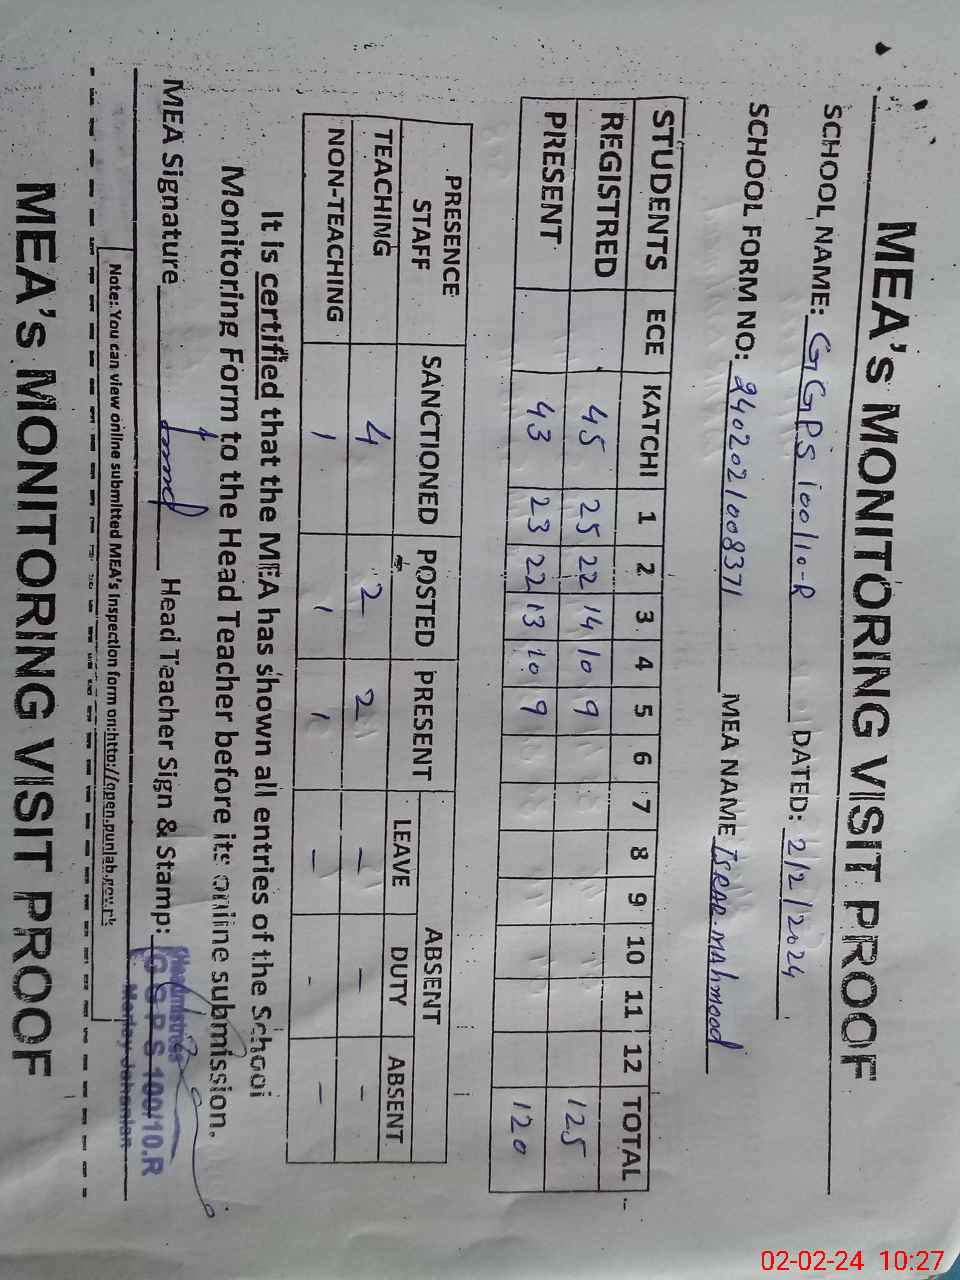 MEA's MONITORING VISIT PROOF
SCHOOL NAME: GGPS 100/10-R DATED: 2/2/2024
SCHOOL FORM NO: 2402021008371 MEA NAME ISRAR MAHMOOD
STUDENTS ECE KATCHI 1 2 3 4 5 6 7 8 9 10 11 12 TOTAL
REGISTRED 45 25 22 14 10 9 125
PRESENT 43 23 22 13 10 9 120
PRESENCE STAFF SANCTIONED POSTED PRESENT ABSENT
LEAVE DUTY ABSENT
TEACHING 4 2 2 - - -
NON-TEACHING 1 1 1 - - -
It is certified that the MEA has shown all entries of the School
Monitoring Form to the Head Teacher before its online submission.
MEA Signature Head Teacher Sign & Stamp:
G G P S 100/10.R
Note: You can view online submitted MEA's inspection form on:http://open.punjab.gov.pk
MEA's MONITORING VISIT PROOF
02-02-24 10:27